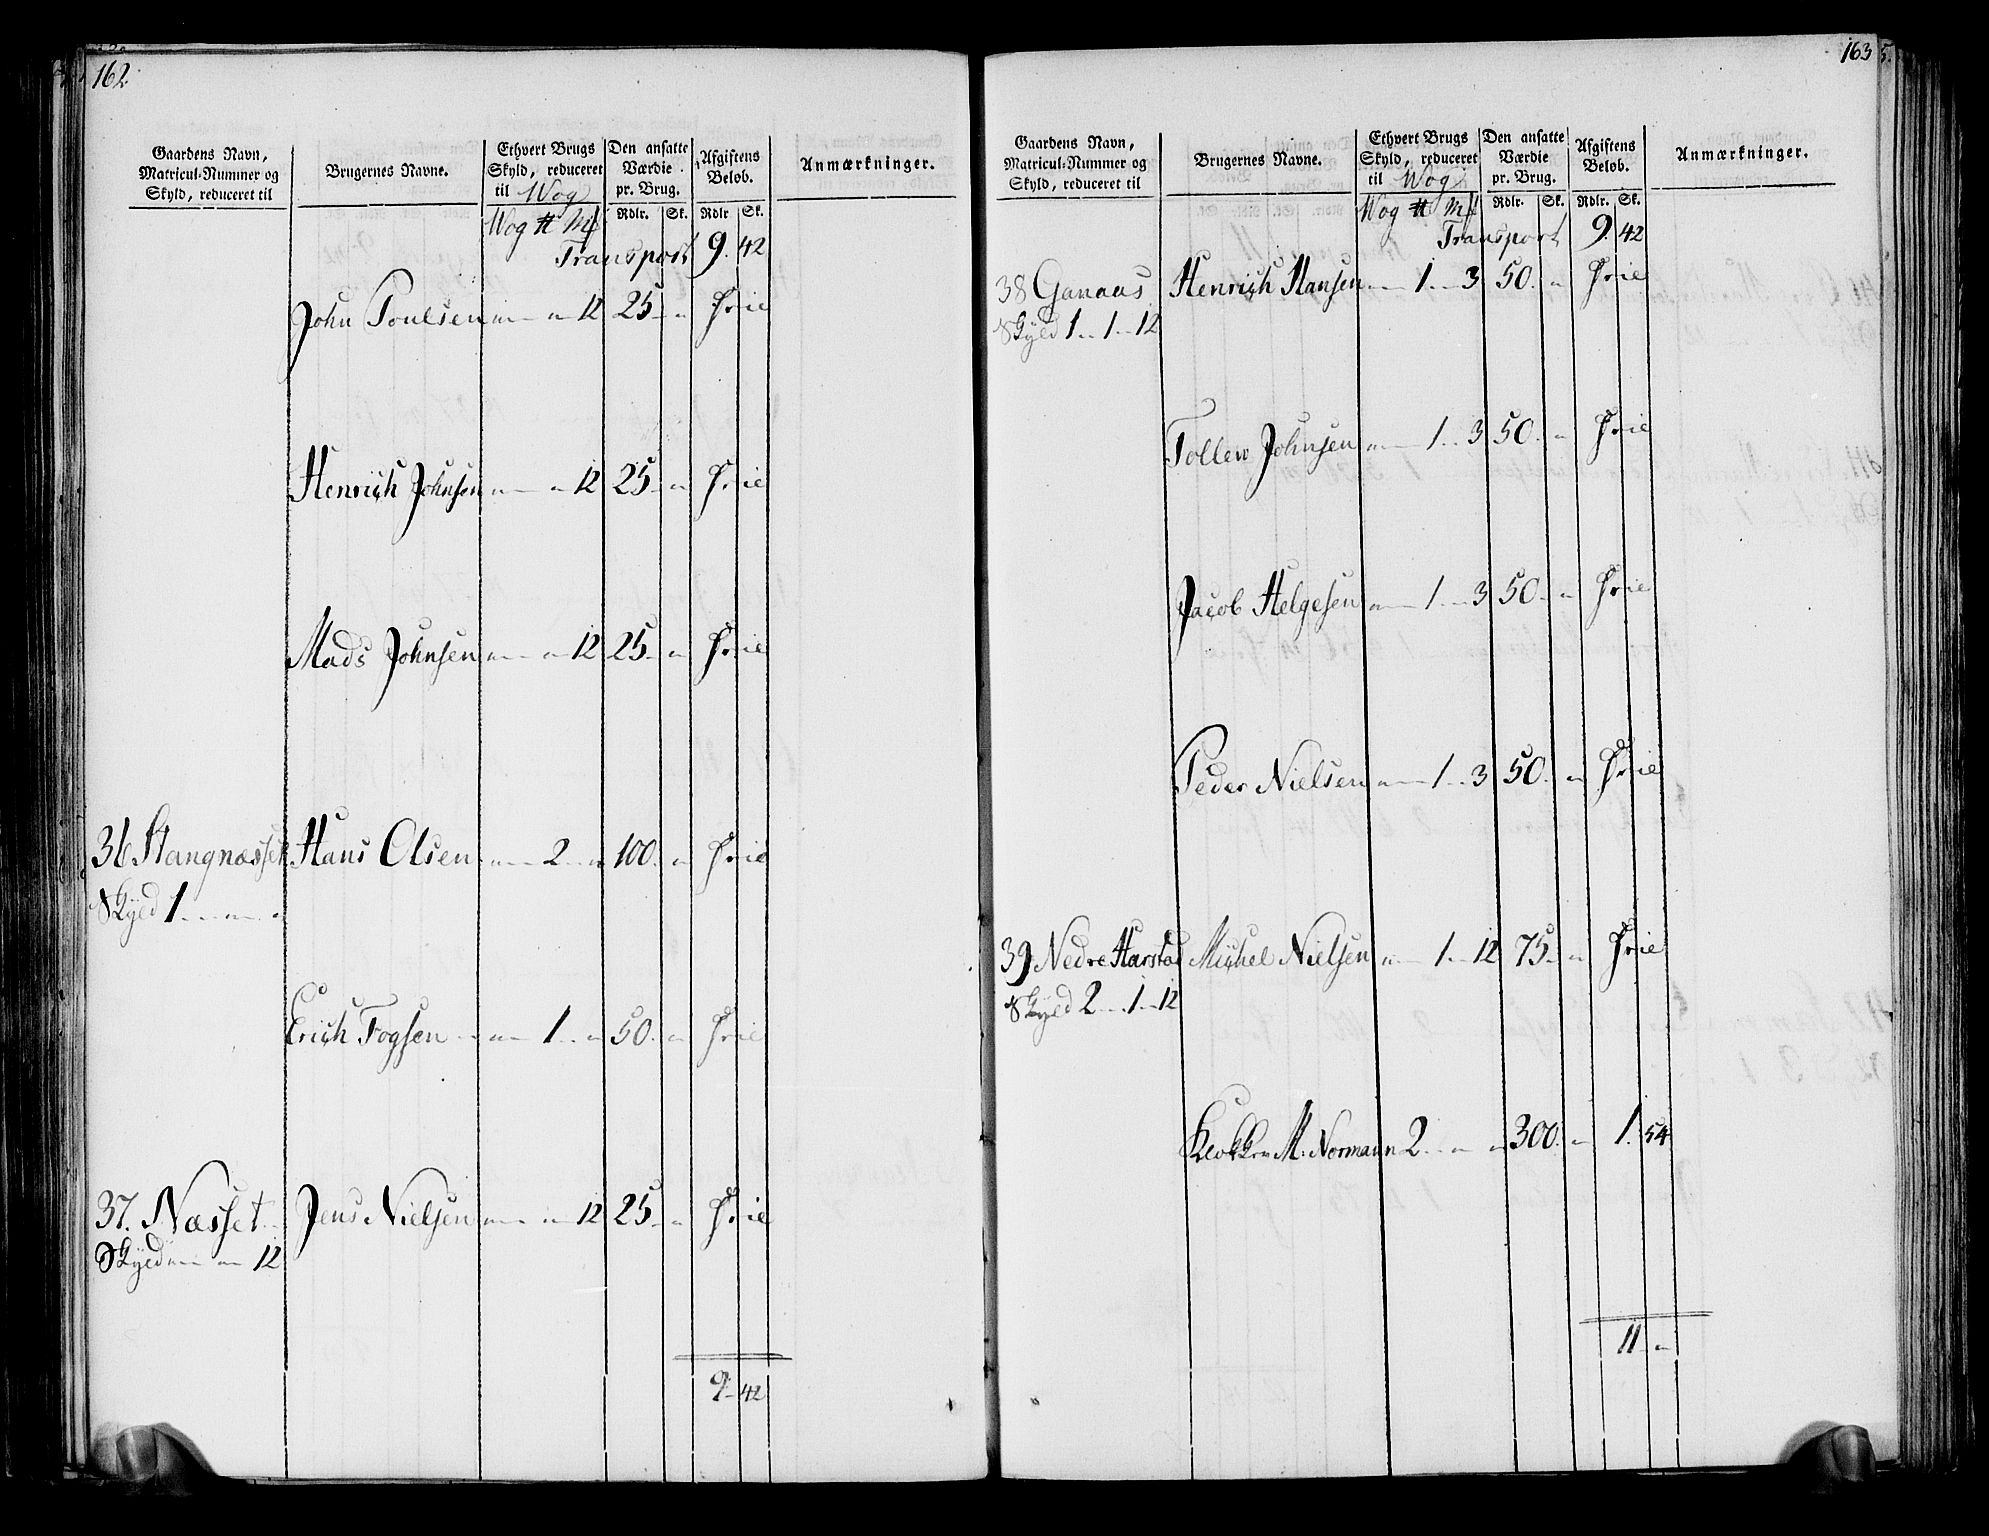 162.
Gaardens Navn, Matricul-Nummer og Skyld, reduceret til
Brugernes Navne.
Ethvert Brugs Skyld, reduceret til Wog
Den ansatte Værdie pr. Brug.
Afgiftens Beløb.
Anmærkninger.
Wog ℔ Mk Rdlr. Sk. Rdlr. Sk.
Transport 9. 42
John Poulsen „ — „ 12 25 „ Frie
Henrich Johnsen „ — „ 12 25 „ Frie
Mads Johnsen „ — „ 12 25 „ Frie
36 Stangnæsset Hans Olsen „ — 2 — „ 100. „ Frie
Skyld 1 — „ — „
Erich Fogsen „ — 1 — „ 50. „ Frie
37. Næsset Jens Nielsen „ — „ 12 25 „ Frie
Skyld „ — „ 12
9 42
163
Gaardens Navn, Matricul-Nummer og Skyld, reduceret til
Brugernes Navne.
Ethvert Brugs Skyld, reduceret til Wog
Den ansatte Værdie pr. Brug.
Afgiftens Beløb.
Anmærkninger.
Wog ℔ Mk Rdlr. Sk. Rdlr. Sk.
Transport 9. 42
38 Ganaas Henrich Hansen „ — 1 — 3 50. „ Frie
Skyld 1 — 1 — 12
Tollew Johnsen „ — 1 — 3 50. „ Frie
Jacob Helgesen „ — 1 — 3 50. „ Frie
Peder Nielsen „ — 1 — 3 50. „ Frie
39 Nedre Harstad Michel Nielsen „ — 1 — 12 75 „ Frie
Skyld 2 — 1 — 12
Klokker M. Normann 2 — „ — „ 300. „ 1. 54
11 „